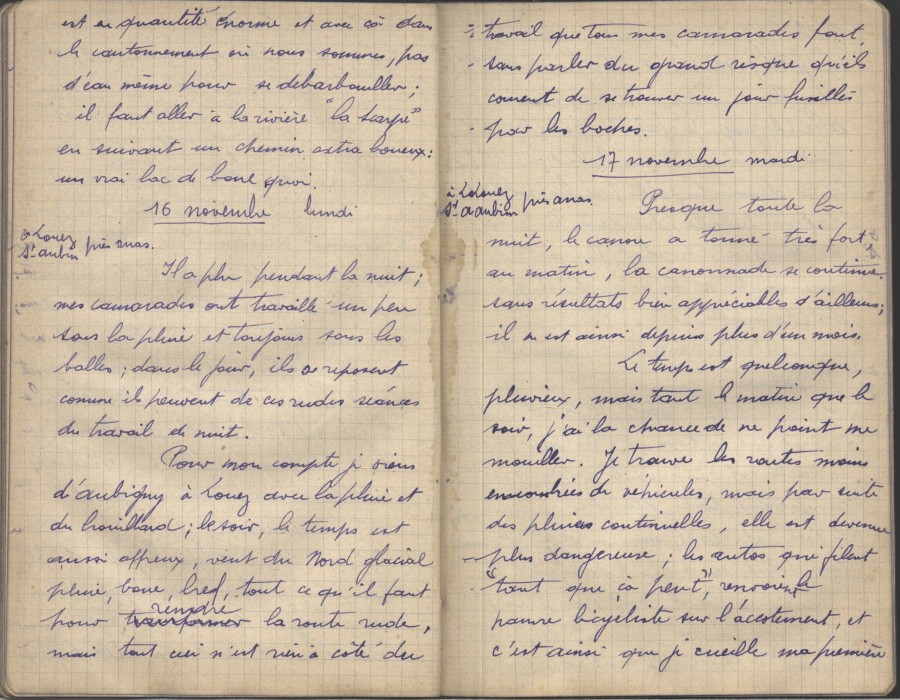 est en quantité énorme et avec çà dans
le cantonnement où nous sommes, pas
d'eau même pour se debarbouiller ;
il faut aller à la rivière "la Scarpe"
en suivant un chemin extra boueux :
un vrai lac de boue quoi.
16 novembre lundi
à Louez
St aubin près arras.
Il a plu pendant la nuit ;
mes camarades ont travaillé un peu
sous la pluie et toujours sous les
balles ; dans le jour, ils se reposent
comme ils peuvent de ces rudes séances
du travail de nuit.
Pour mon compte je viens
d'aubigny à Louez avec la pluie et
du brouillard ; le soir, le temps est
aussi affreux, vent du Nord glacial
pluie, boue, bref, tout ce qu'il faut
rendre
pour la route rude,
mais tout ceci n'est rien à côté du
travail que tous mes camarades font,
sans parler du grand risque qu'ils
courent de se trouver un jour fusillés
par les boches.
17 novembre mardi
à Louez
St aubin près arras.
Presque toute la
nuit, le canon a tonné très fort
au matin, la canonnade se continue
sans résultats bien appréciables d'ailleurs ;
il en est ainsi depuis plus d'un mois.
Le temps est quelconque,
pluvieux, mais tant le matin que le
soir, j'ai la chance de ne point me
mouiller. Je trouve les routes moins
encombrées de véhicules, mais par suite
des pluies continuelles, elle est devenue
plus dangereuse ; les autos qui filent
"tant que çà peut", renvoient le
pauvre bicycliste sur l'acotement, et
c'est ainsi que je cueille ma première